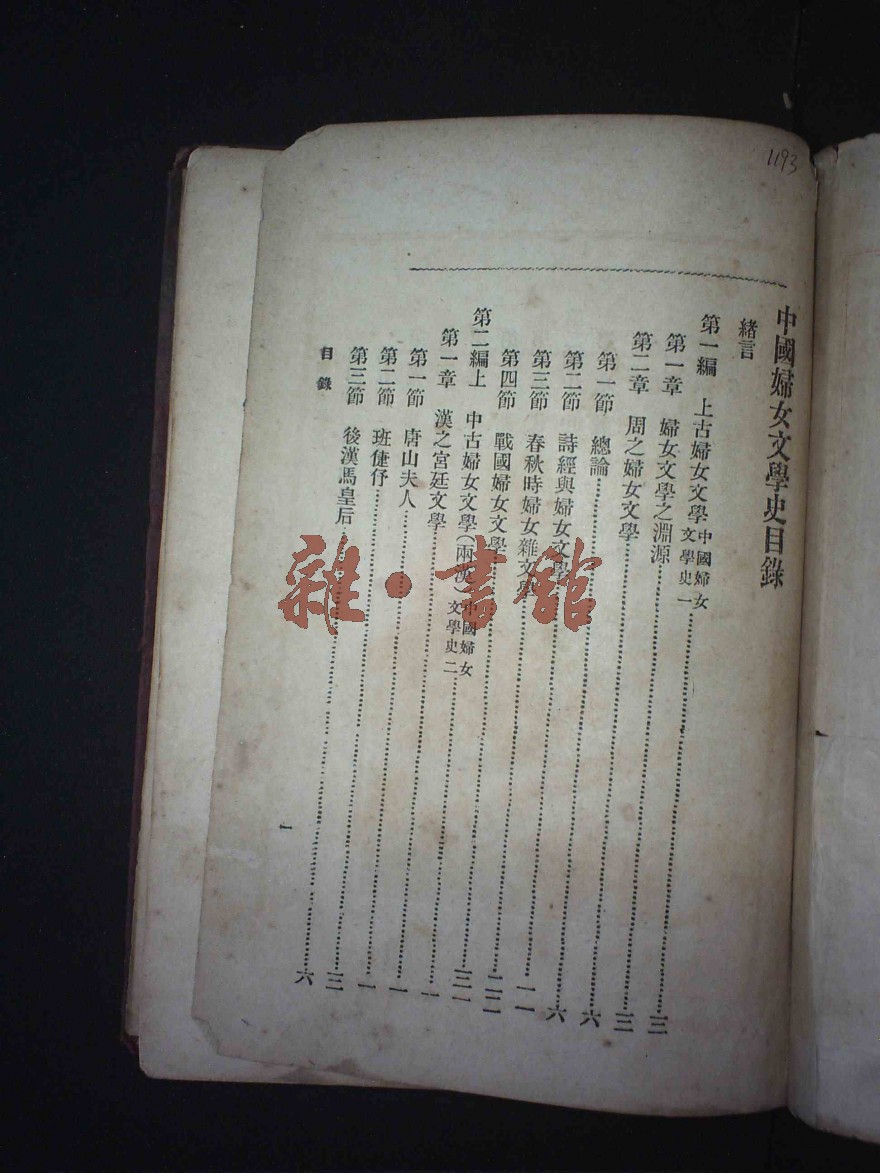 1193
中國婦女文學史目錄
緒言
第一編 上古婦女文學 中國婦女文學史一……三
第一章 婦女文學之淵源……三
第二章 周之婦女文學……六
第一節 總論……六
第二節 詩經與婦女文學……一一
第三節 春秋時婦女雜文學……二二
第四節 戰國婦女文學……三一
第二編上 中古婦女文學(兩漢) 中國婦女文學史二……一
第一章 漢之宮廷文學……一
第一節 唐山夫人……一
第二節 班倢伃……三
第三節 後漢馬皇后……六
目錄
一
雜·書館